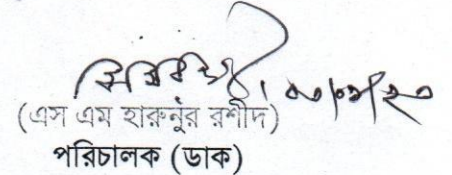 (এস এম হারুনুর রশীদ)
পরিচালক (ডাক)